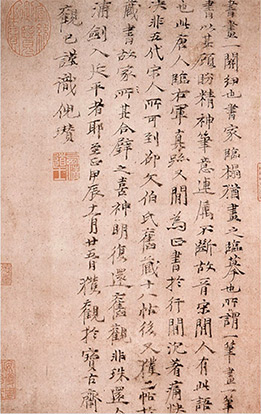 書畫一關紐也書家臨榻猶畫之臨摹也所謂一筆畫一筆
書以其顧盼精神筆意連属不斷故晉宋間人有此語
也此唐人臨右軍真跡又間為正書於行間沈著痛快
決非五代宋人所可到郤久伯氏舊藏十八帖後又獲二帖於
藏書故家所其合璧之喜神明復還舊觀非珠還合
浦劍入延平者耶至正甲辰十一月廿五日獲觀於寶古齋
觀已謹識倪瓚